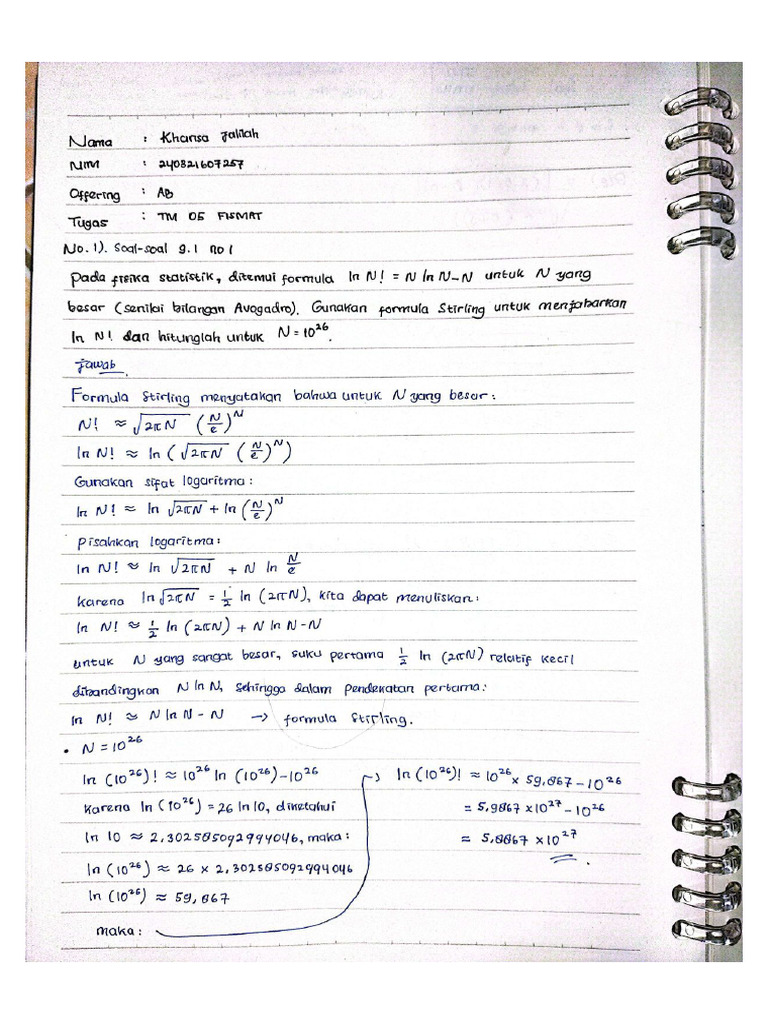 Nama : Khansa Jalilah
NIM : 240321607257
Offering : AB
Tugas : TM 05 FISMAT
No. 1). Soal-soal 9.1 no 1
Pada fisika statistik, ditemui formula ln N! = N ln N-N untuk N yang
besar (senilai bilangan Avogadro). Gunakan formula Stirling untuk menjabarkan
ln N! dan hitunglah untuk N = 10²⁶.
Jawab
Formula Stirling menyatakan bahwa untuk N yang besar:
N! ≈ √2πN (N/e)^N
ln N! ≈ ln (√2πN (N/e)^N)
Gunakan sifat logaritma:
ln N! ≈ ln √2πN + ln (N/e)^N
Pisahkan logaritma:
ln N! ≈ ln √2πN + N ln N/e
Karena ln √2πN = 1/2 ln (2πN), kita dapat menuliskan:
ln N! ≈ 1/2 ln (2πN) + N ln N-N
untuk N yang sangat besar, suku pertama 1/2 ln (2πN) relatif kecil
dibandingkan N ln N, sehingga dalam pendekatan pertama:
ln N! ≈ N ln N - N → formula Stirling.
• N = 10²⁶
ln (10²⁶)! ≈ 10²⁶ ln (10²⁶) - 10²⁶
Karena ln (10²⁶) = 26 ln 10, diketahui
ln 10 ≈ 2,302585092994046, maka:
ln (10²⁶) ≈ 26 × 2,302585092994046
ln (10²⁶) ≈ 59,867
maka:
→ ln (10²⁶)! ≈ 10²⁶ × 59,867 - 10²⁶
= 5,9867 × 10²⁷ - 10²⁶
= 5,8867 × 10²⁷